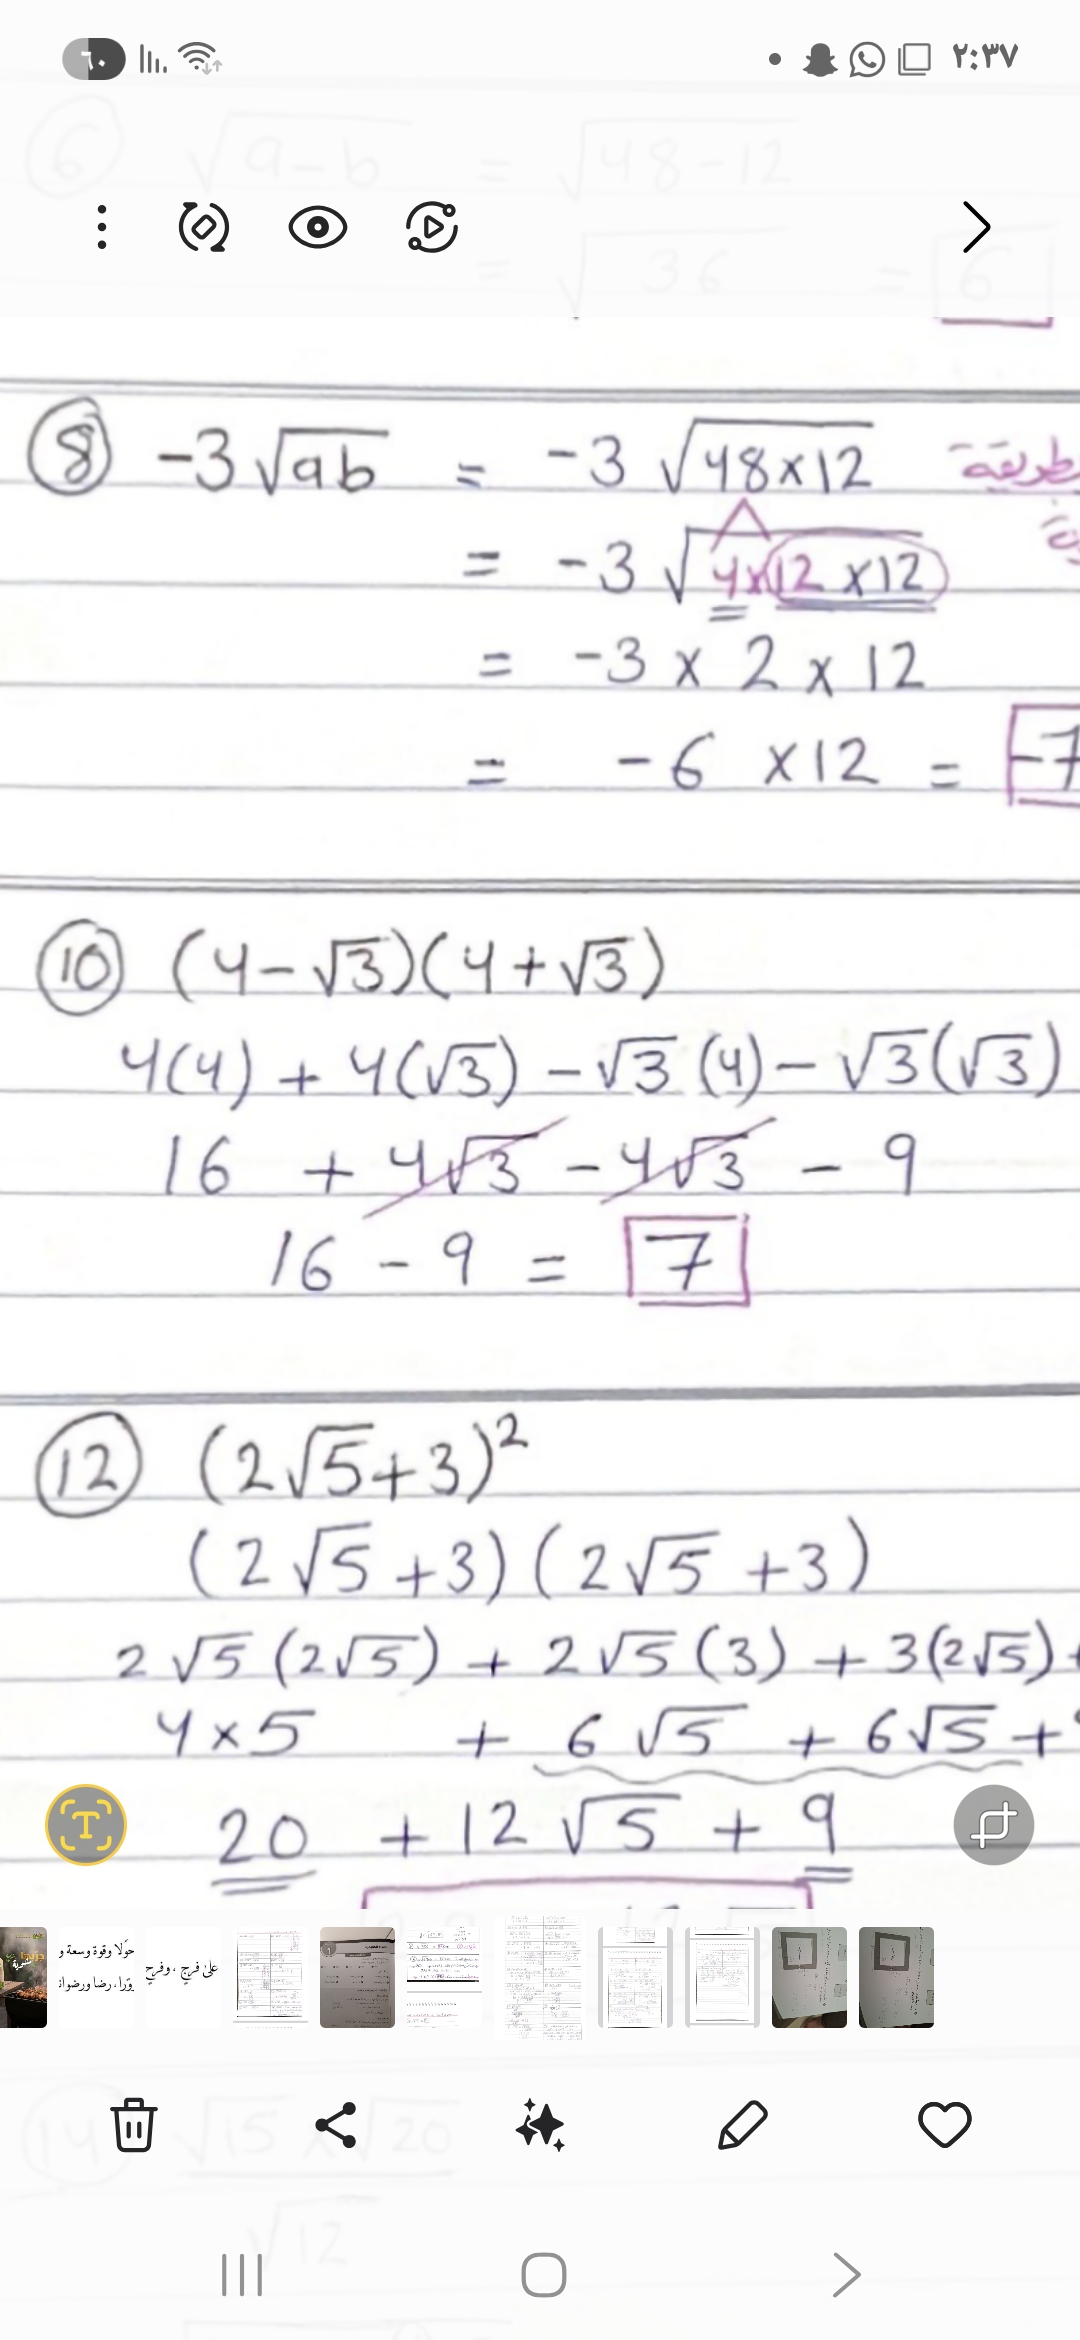 ٦٠
٢:٣٧
6 √a-b = √48-12
= √36 = 6
8 -3√ab = -3√48×12
= -3√4×12×12
= -3 × 2 × 12
= -6 ×12 = -7
10 (4-√3)(4+√3)
4(4) + 4(√3) - √3(4) - √3(√3)
16 + 4√3 - 4√3 - 9
16 - 9 = 7
12 (2√5+3)²
(2√5+3)(2√5+3)
2√5(2√5) + 2√5(3) + 3(2√5) +
4×5 + 6√5 + 6√5 +
20 + 12√5 + 9
T
حَولا وقوة وسعة و
وزرا، رضا ورضوانا
على فرج ، وفرح
14 √15 × √20
√12